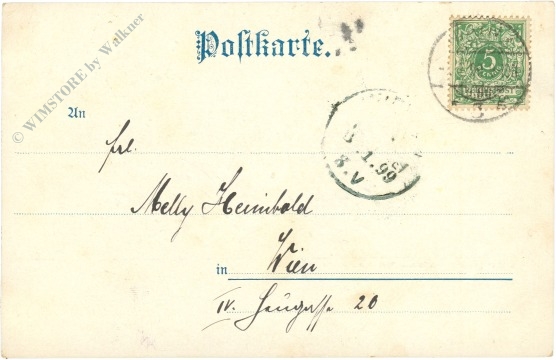 Postkarte.
5
PFENNIG
An
Frl.
Melly Heimbold
in Wien
IV. Heugasse 20
B
.1.99
8.V
© WIMSTORE by Walkner